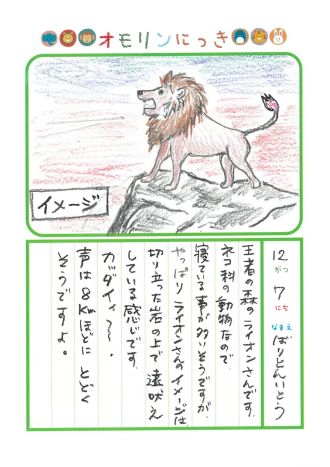 オモリンにっき
イメージ
12がつ7にち なまえ ばりとんいとう
王者の森のライオンさんです。
ネコ科の動物なので
寝ている事が多いそうですが、
やっぱりライオンさんのイメージは
切り立った岩の上で遠吠え
している感じです。
カッダイィ〜〜。
声は8kmほどにとどく
そうですよ。